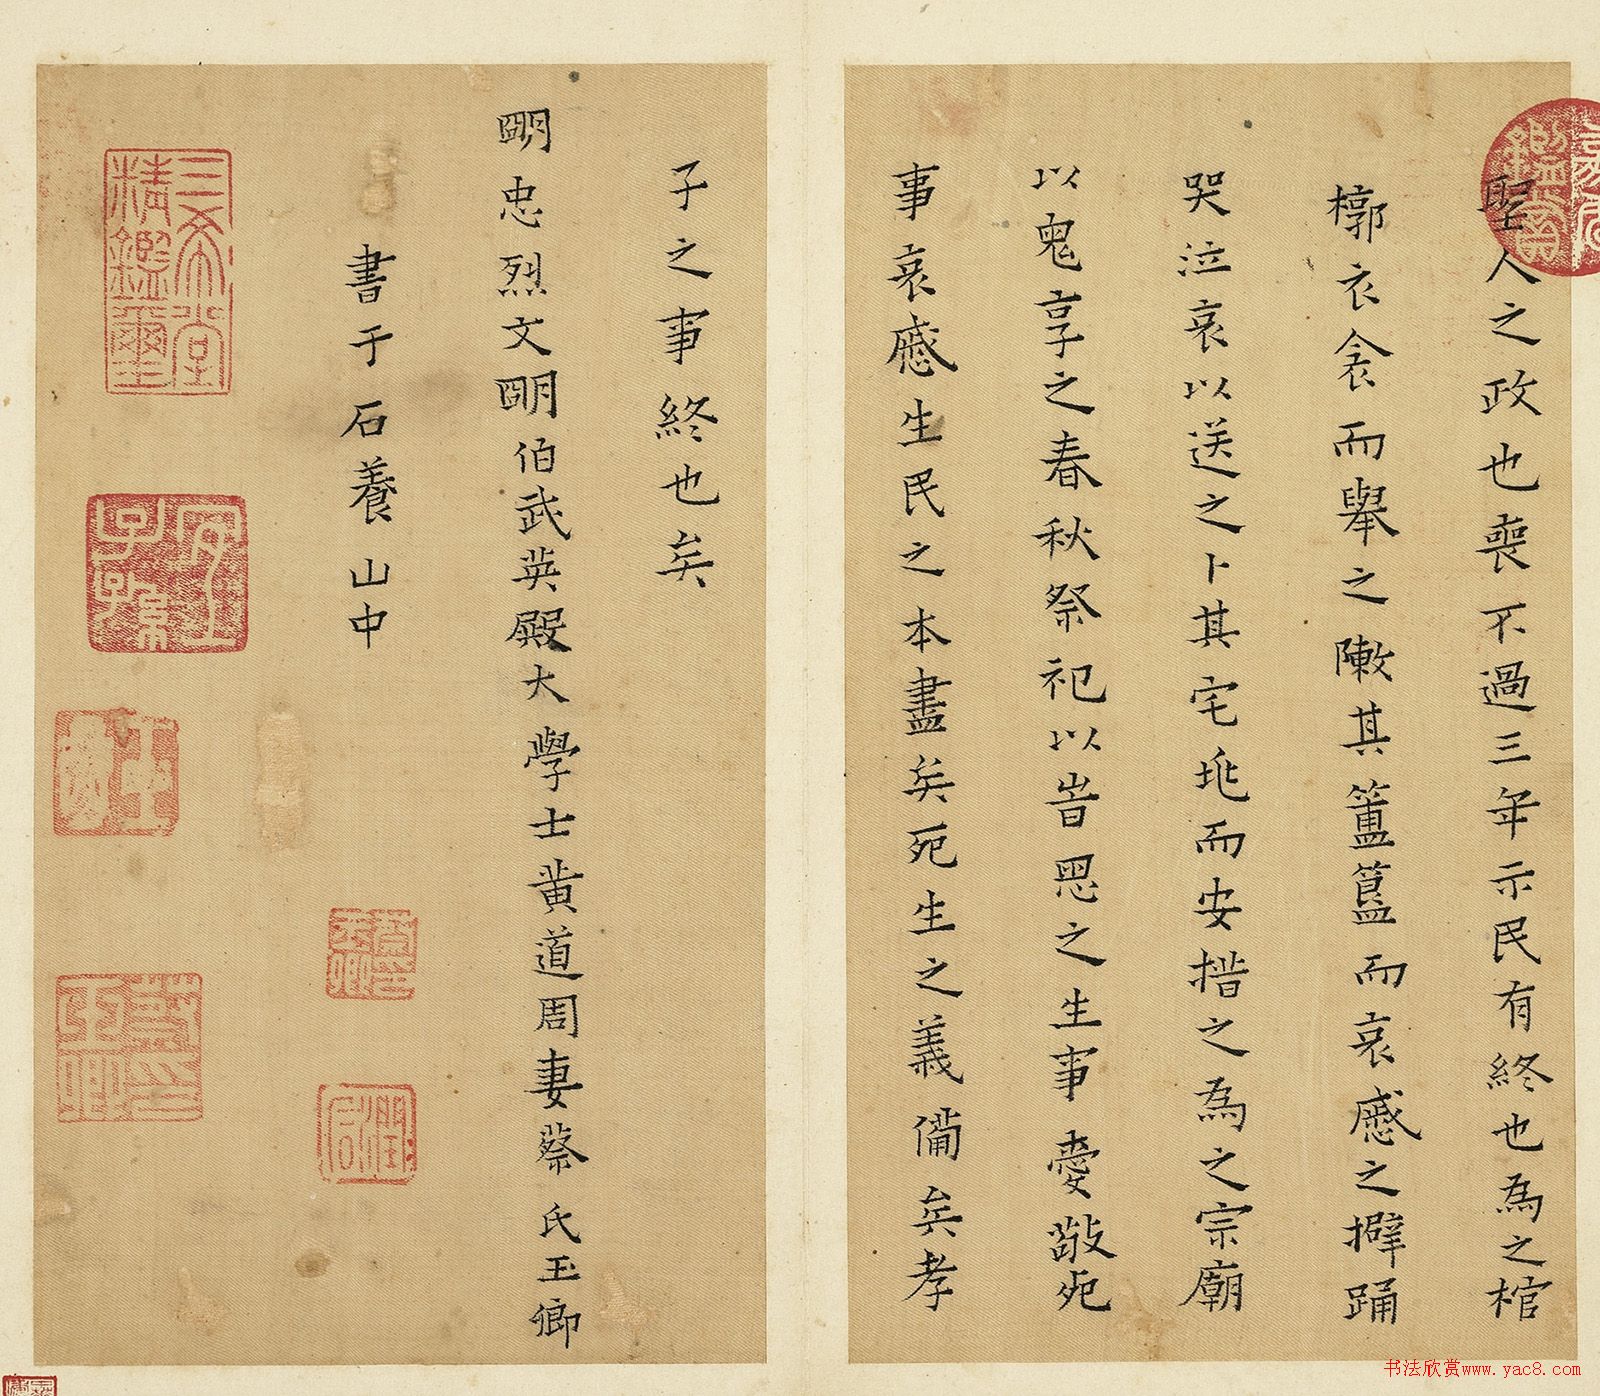 聖人之政也喪不過三年示民有終也為之棺
槨衣衾而舉之陳其簠簋而哀慼之擗踊
哭泣哀以送之卜其宅兆而安措之為之宗廟
以鬼享之春秋祭祀以旹思之生事愛敬死
事哀慼生民之本盡矣死生之義備矣孝
子之事終也矣
明忠烈文明伯武英殿大學士黃道周妻蔡氏玉卿
書于石養山中
三希堂精鑑璽
宜子孫
蔡氏玉卿
書法欣赏www.yac8.com